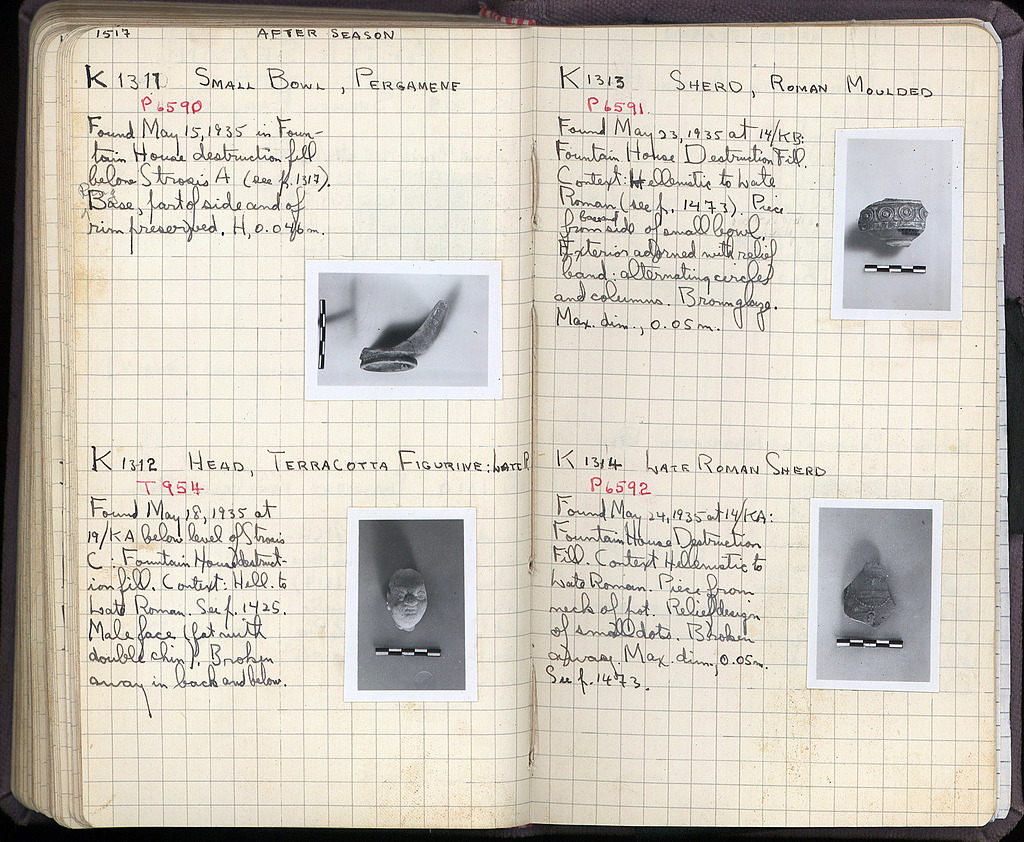 1517 AFTER SEASON
K 1311 SMALL BOWL, PERGAMENE
P 6590
Found May 15, 1935 in Foun-
tain House destruction fill
below Strosis A (see p. 1317).
Base, part of side and of
rim preserved. H, 0.046 m.
K 1312 HEAD, TERRACOTTA FIGURINE: LATE R.
T 954
Found May 18, 1935 at
19/KA below level of Strosis
C : Fountain House destruct-
ion fill. Context: Hell. to
Late Roman. See p. 1425.
Male face (fat with
double chin). Broken
away in back and below.
K 1313 SHERD, ROMAN MOULDED
P 6591
Found May 23, 1935 at 14/KB:
Fountain House Destruction Fill.
Context: Hellenistic to Late
Roman (see p. 1473). Piece
from base and side of small bowl
Exterior adorned with relief
band: alternating circles
and columns. Brown glaze.
Max. dim., 0.05 m.
K 1314 LATE ROMAN SHERD
P 6592
Found May 24, 1935 at 14/KA:
Fountain House Destruction
Fill. Context Hellenistic to
Late Roman. Piece from
neck of pot. Relief design
of small dots. Broken
away. Max. dim, 0.05m.
See p. 1473.